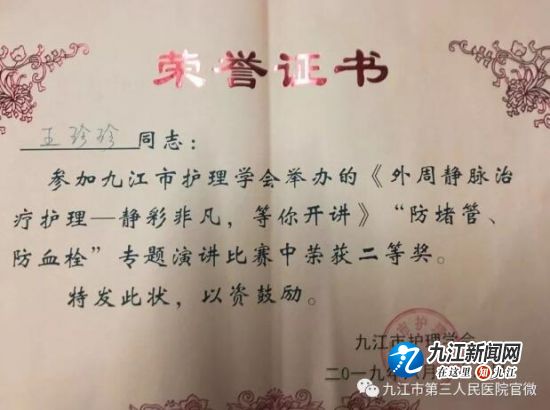 荣誉证书
王珍珍 同志：
参加九江市护理学会举办的《外周静脉治
疗护理—静彩非凡，等你开讲》“防堵管、
防血栓”专题演讲比赛中荣获二等奖。
特发此状，以资鼓励。
九江市护理学会
二〇一九年 月
九江新闻网
在这里 知九江
九江市第三人民医院官微